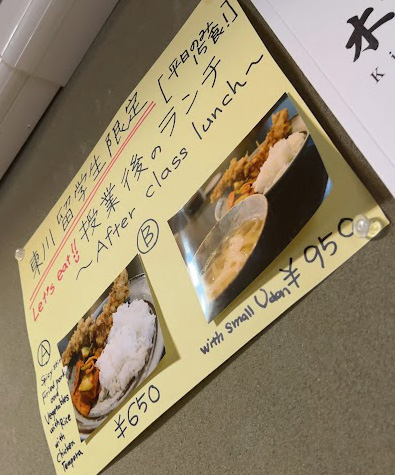 東川「留学生」限定 [平日のみ
授業後のランチ
Let's eat!!
~After class lunch~
Ⓐ
Fried pork
and
Vegetables
with Rice
with
Chicken
Tempura
¥650
Ⓑ
with small Udon ¥950
水
Ki